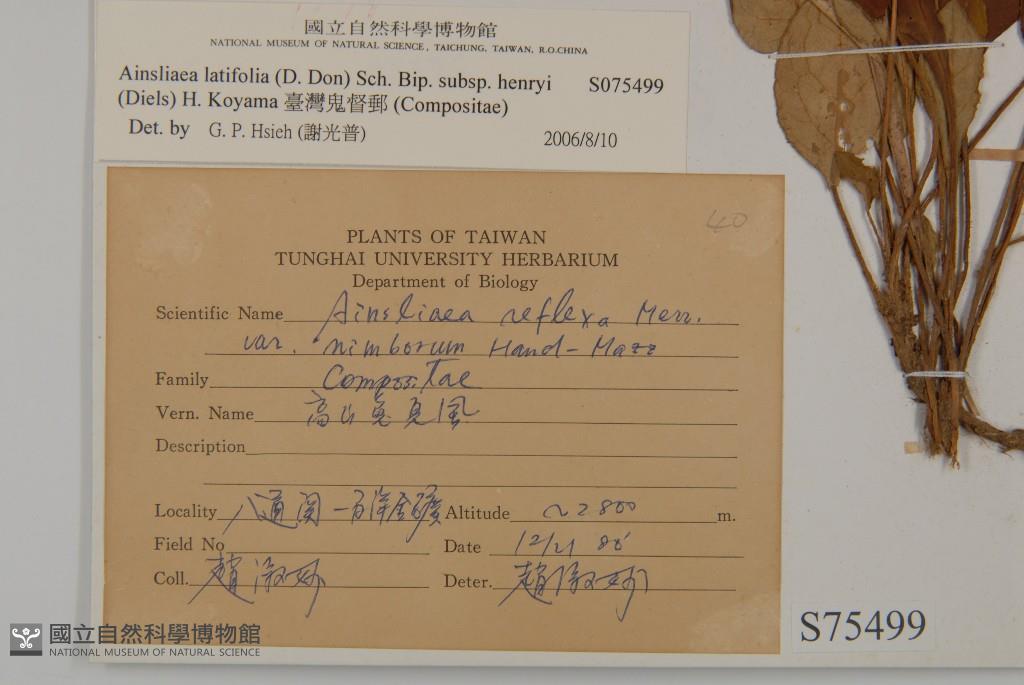 國立自然科學博物館
NATIONAL MUSEUM OF NATURAL SCIENCE, TAICHUNG, TAIWAN, R.O.CHINA
Ainsliaea latifolia (D. Don) Sch. Bip. subsp. henryi S075499
(Diels) H. Koyama 臺灣鬼督郵 (Compositae)
Det. by G. P. Hsieh (謝光普) 2006/8/10
40
PLANTS OF TAIWAN
TUNGHAI UNIVERSITY HERBARIUM
Department of Biology
Scientific Name Ainsliaea reflexa Merr.
var. nimborum Hand-Mazz
Family Compositae
Vern. Name 高山鬼見風
Description
Locality 八通関—百洋金礦 Altitude ~2800 m.
Field No Date 12/21
Coll. 趙淑妙 Deter. 趙淑妙
S75499
國立自然科學博物館
NATIONAL MUSEUM OF NATURAL SCIENCE